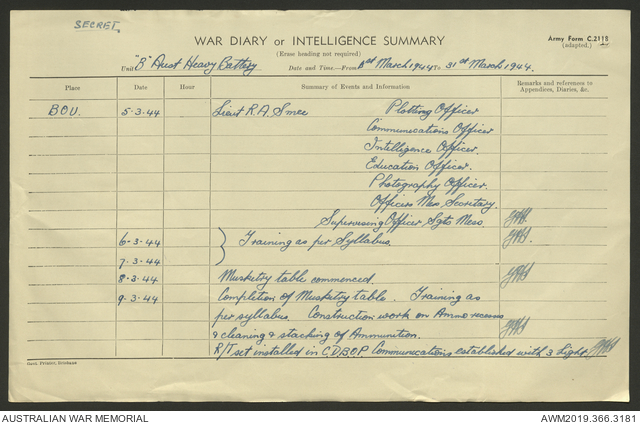 SECRET.
WAR DIARY or INTELLIGENCE SUMMARY
Army Form C.2118
(adapted.)
(Erase heading not required)
Unit "B" Aust Heavy Battery. Date and Time.—From 1st March 1944 To 31st March 1944.
Place Date Hour Summary of Events and Information Remarks and references to Appendices, Diaries, &c.
BOU. 5-3-44 Lieut R.A. Smee Plotting Officer
Communications Officer
Intelligence Officer.
Education Officer.
Photography Officer.
Officers Mess Secretary.
Supervising Officer Sgts Mess.
6-3-44 } Training as per Syllabus.
7-3-44
8-3-44 Musketry table commenced.
9-3-44 Completion of Musketry table. Training as
per syllabus. Construction work on Ammo recesses
& cleaning & stacking of Ammunition.
R/T set installed in C.D.B.O.P. Communications established with 3 Light
Govt. Printer, Brisbane
AUSTRALIAN WAR MEMORIAL
AWM2019.366.3181